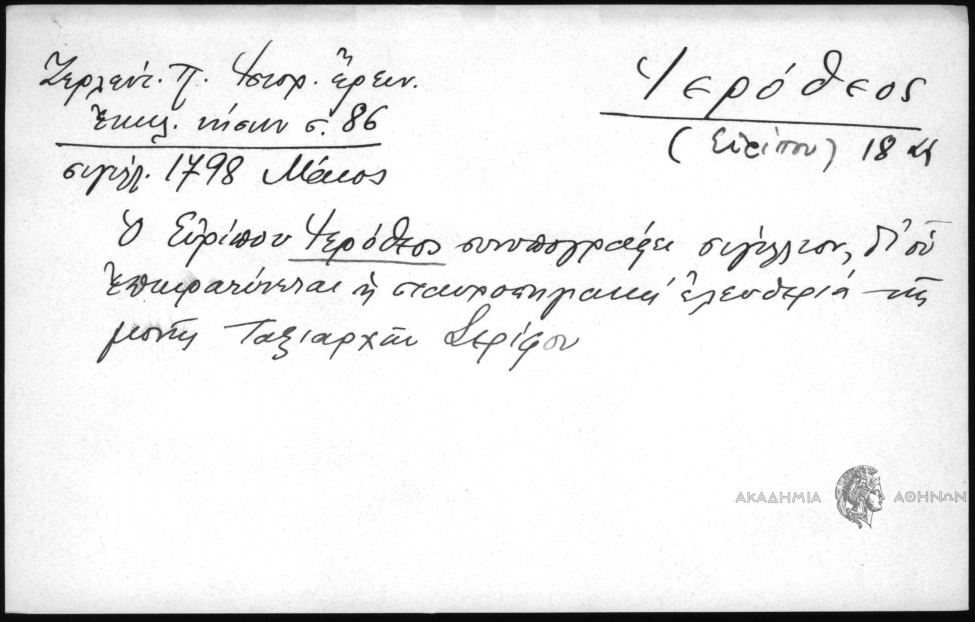 Ζερλέντ. Π. Ἱστορ. ἔρευν.
Ἐκκλ. νήσων σ. 86
σιγίλλ. 1798 Μάιος
Ἱερόθεος
(Εὐρίπου) 18
Ὁ Εὐρίπου Ἱερόθεος συνυπογράφει σιγίλλιον, δι' οὗ
ἐπικρατύνεται ἡ σταυροπηγιακή ἐλευθερία τῆς
μονῆς Ταξιαρχῶν Σερίφου
ΑΚΑΔΗΜΙΑ ΑΘΗΝΩΝ